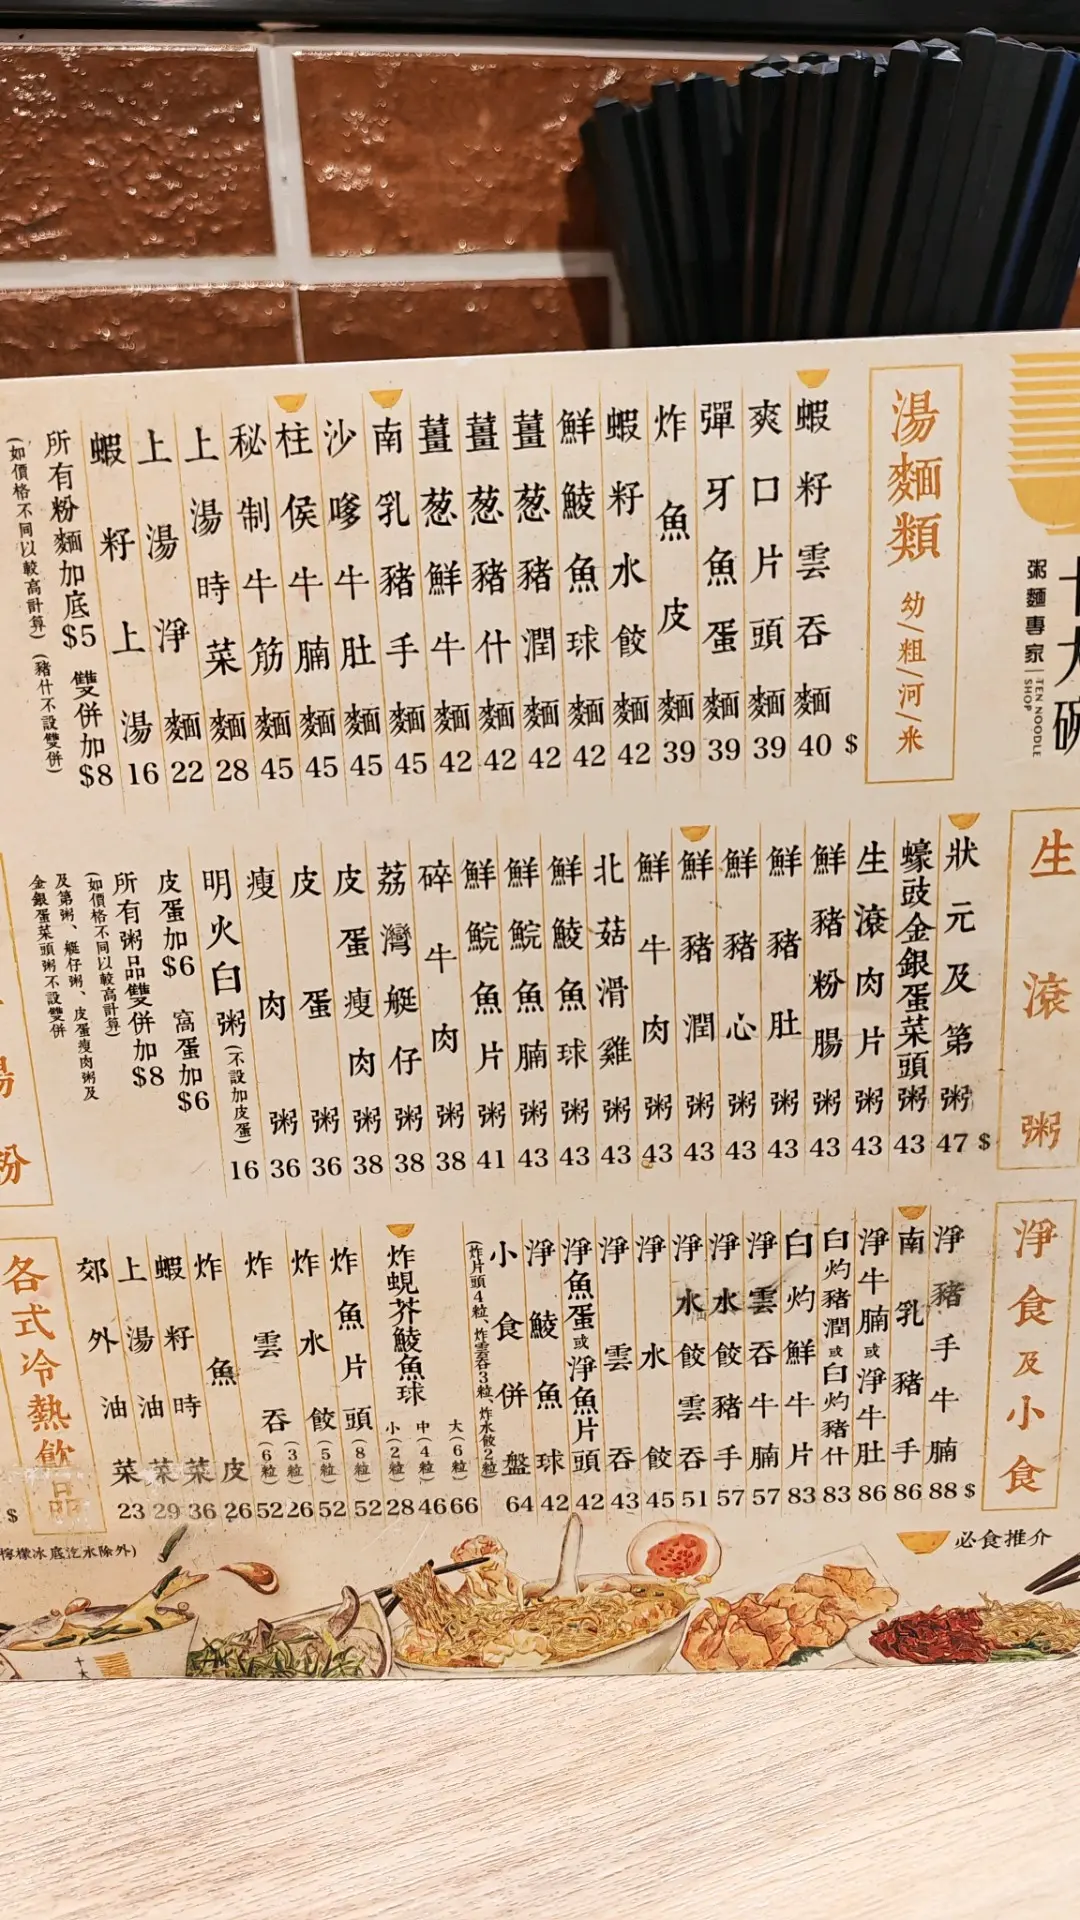 十大碗
粥麵專家
TEN NOODLE SHOP
湯麵類 幼/粗/河/米
$
蝦籽雲吞麵 40
爽口片頭麵 39
彈牙魚蛋麵 39
炸魚皮麵 39
蝦籽水餃麵 42
鮮鯪魚球麵 42
薑葱豬潤麵 42
薑葱豬什麵 42
薑葱鮮牛麵 42
南乳豬手麵 45
沙嗲牛肚麵 45
柱侯牛腩麵 45
秘制牛筋麵 45
上湯時菜麵 28
上湯淨麵 22
蝦籽上湯 16
所有粉麵加底$5 雙併加$8
(如價格不同以較高計算)(豬什不設雙併)
生滾粥
$
狀元及第粥 47
蠔豉金銀蛋菜頭粥 43
生滾肉片粥 43
鮮豬粉腸粥 43
鮮豬肚粥 43
鮮豬心粥 43
鮮豬潤粥 43
鮮牛肉粥 43
北菇滑雞粥 43
鮮鯪魚球粥 43
鮮鯇魚腩粥 43
鮮鯇魚片粥 41
碎牛肉粥 38
荔灣艇仔粥 38
皮蛋瘦肉粥 38
皮蛋粥 36
瘦肉粥 36
明火白粥(不設加皮蛋) 16
皮蛋加$6 窩蛋加$6
所有粥品雙併加$8
(如價格不同以較高計算)
及第粥、艇仔粥、皮蛋瘦肉粥及
金銀蛋菜頭粥不設雙併
湯粉
淨食及小食
$
淨豬手牛腩 88
南乳豬手 86
淨牛腩或淨牛肚 86
白灼豬潤或白灼豬什 83
白灼鮮牛片 83
淨雲吞牛腩 57
淨水餃豬手 57
淨水餃雲吞 51
淨水餃 45
淨雲吞 43
淨魚蛋或淨魚片頭 42
淨鯪魚球 42
小食併盤 64
(炸片頭4粒、炸雲吞3粒、炸水餃2粒)
炸蜆芥鯪魚球 大(6粒) 66 中(4粒) 46 小(2粒) 28
炸魚片頭(8粒) 52
炸水餃(5粒) 52 (3粒) 26
炸雲吞(6粒) 52
炸魚皮 26
蝦籽時菜 36
上湯油菜 29
郊外油菜 23
各式冷熱飲品
$
檸檬冰底汔水除外)
必食推介
十大